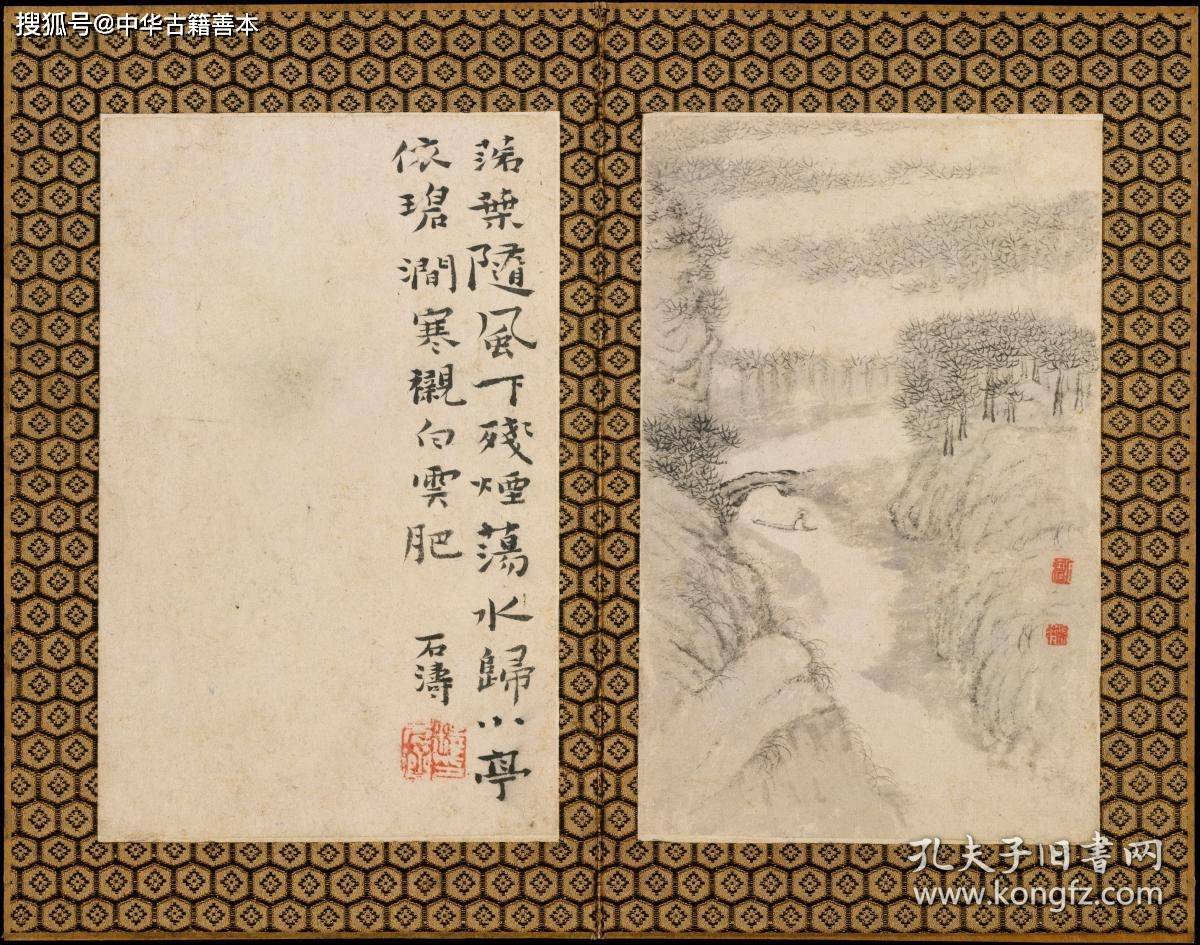 搜狐号@中华古籍善本
落葉隨風下殘煙蕩水歸小亭
依碧澗寒襯白雲肥
石濤
孔夫子旧书网
www.kongfz.com